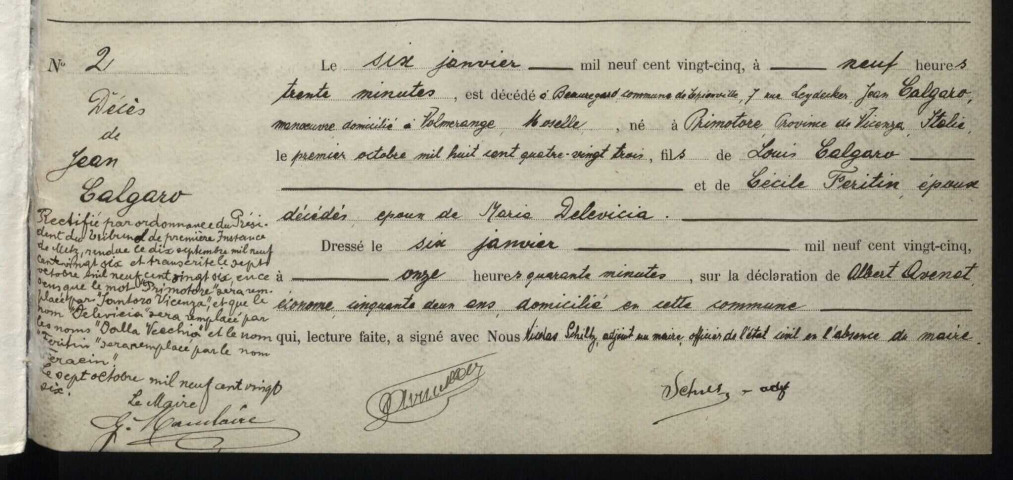 N° 2
Décès
de
Jean
Calgaro
Rectifié par ordonnance du Prési-
dent du Tribunal de première Instance
de Metz, rendue le dix septembre mil neuf
cent vingt six et transcrite le sept
octobre mil neuf cent vingt six, en ce
sens que le mot "Primotore" sera rem-
placé par "Tontozo Vicenza", et que le
nom "Delevicia" sera remplacé par
les noms "Dalla Vecchia" et le nom
"Feritin" sera remplacé par le nom
Le sept octobre mil neuf cent vingt
six.
Le Maire
Le six janvier mil neuf cent vingt-cinq, à neuf heures
trente minutes, est décédé à Beauregard commune de 7 rue Jean Calgaro,
manœuvre domicilié à Volmerange, Moselle, né à Primotore, Province de Vicenza, Italie,
le premier octobre mil huit cent quatre-vingt trois, fils de Louis Calgaro
et de Cécile Feritin époux
décédés époux de Maria Delevicia.
Dressé le six janvier mil neuf cent vingt-cinq,
à onze heures quarante minutes, sur la déclaration de Albert Avenat,
économe cinquante deux ans, domicilié en cette commune
qui, lecture faite, a signé avec Nous Nicolas Schiltz, adjoint au maire, officier de l'état civil en l'absence du maire.
Schiltz - adj